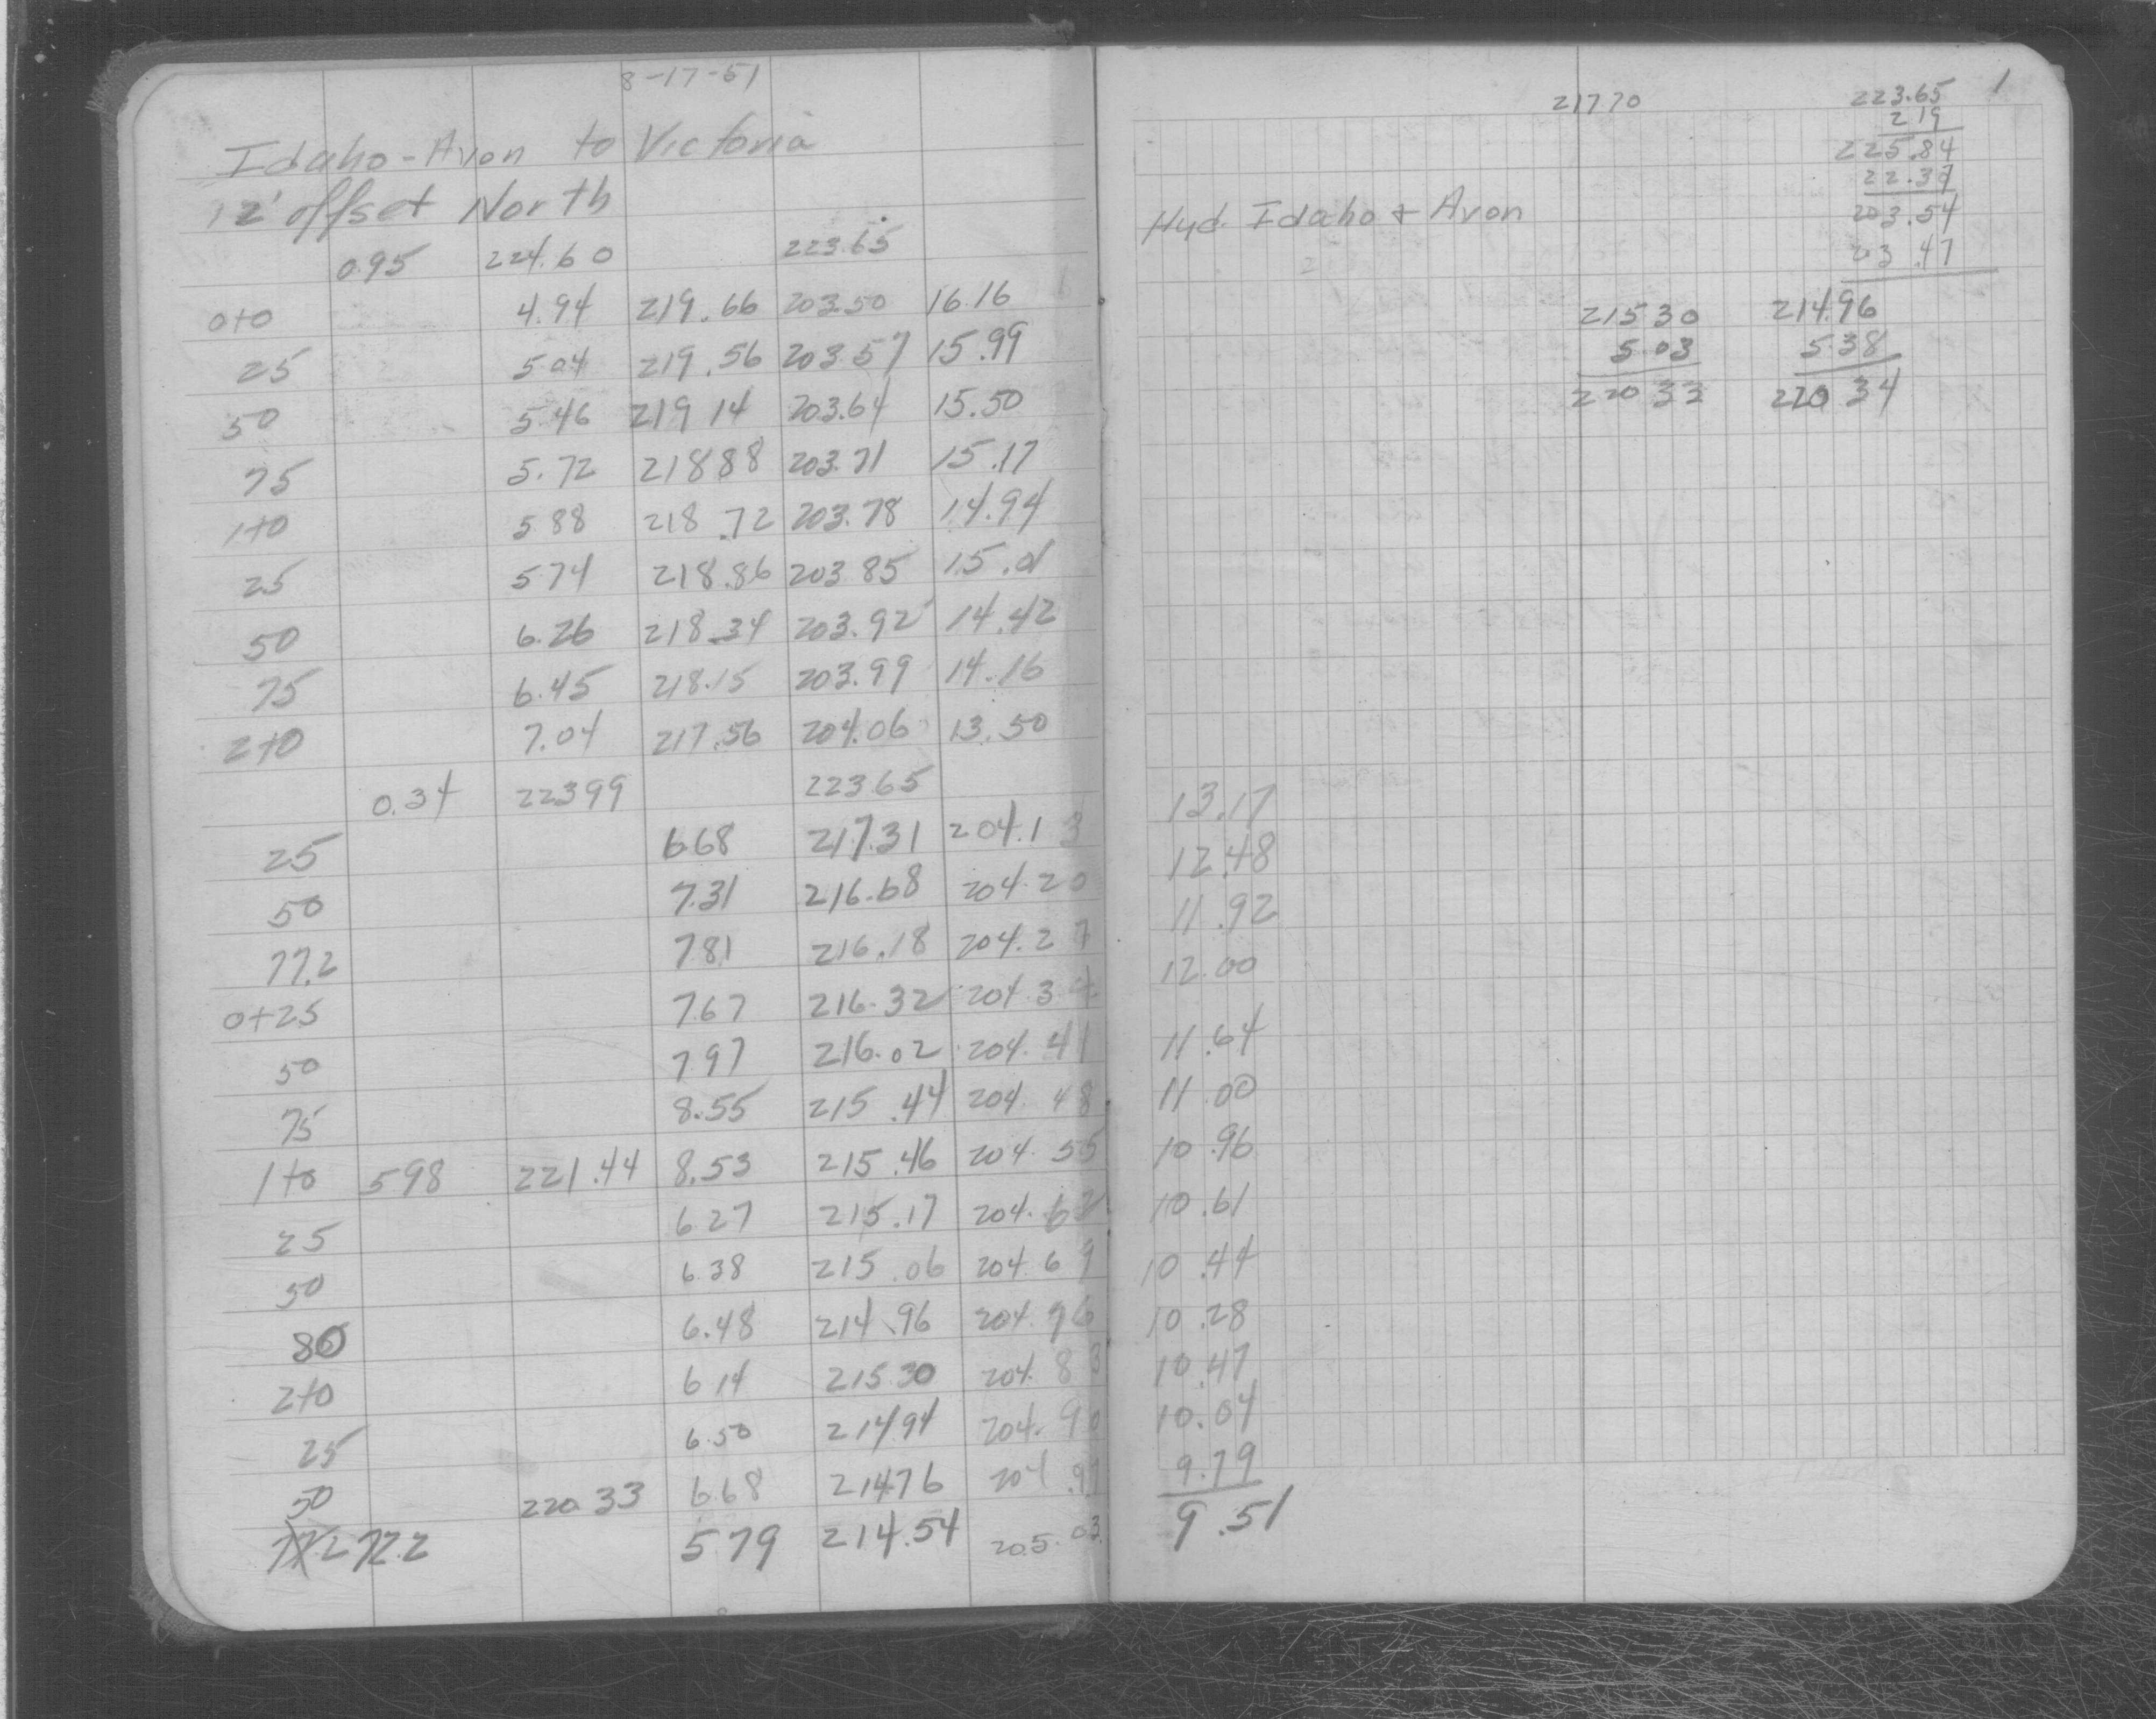 8-17-51
Idaho-Avon to Victoria
12' offset North
0.95 224.60 223.65
0+0 4.94 219.66 203.50 16.16
25 5.04 219.56 203.57 15.99
50 5.46 219 14 203.64 15.50
75 5.72 218 88 203.71 15.17
1+0 5 88 218.72 203.78 14.94
25 5 74 218.86 203 85 15.01
50 6.26 218.34 203.92 14.42
75 6.45 218.15 203.99 14.16
2+0 7.04 217.56 204.06 13.50
0.34 223 99 223 65
25 6 68 217.31 204.13 13.17
50 7.31 216.68 204.20 12.48
77.2 7 81 216.18 204.27 11.92
0+25 7 67 216.32 204.34 12.00
50 7 97 216.02 204.41 11.64
75 8.55 215.44 204.48 11.00
1+0 5 98 221.44 8.53 215.46 204.55 10.96
25 6 27 215.17 204.62 10.61
50 6.38 215.06 204.69 10.44
80 6.48 214.96 204.76 10.28
2+0 6 14 215 30 204.83 10.47
25 6.50 214 94 204.90 10.04
50 220 33 6.68 214 76 204.97 9.79
72.2 5 79 214.54 205.03 9.51
1
217 70
223.65
2 19
225.84
22.37
203.54
03.47
Hyd. Idaho & Avon
215 30 214 96
5 03 5 38
220 33 220 34